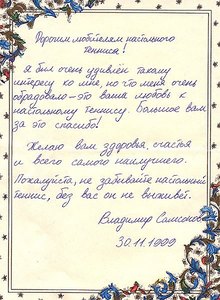 Дорогим любителям настольного
тенниса!
Я был очень удивлён такому
интересу ко мне, но что меня очень
обрадовало - это ваша любовь к
настольному теннису. Большое вам
за это спасибо!
Желаю вам здоровья, счастья
и всего самого наилучшего.
Пожалуйста, не забывайте настольный
теннис, без вас он не выживет.
Владимир Самсонов
30.11.1999